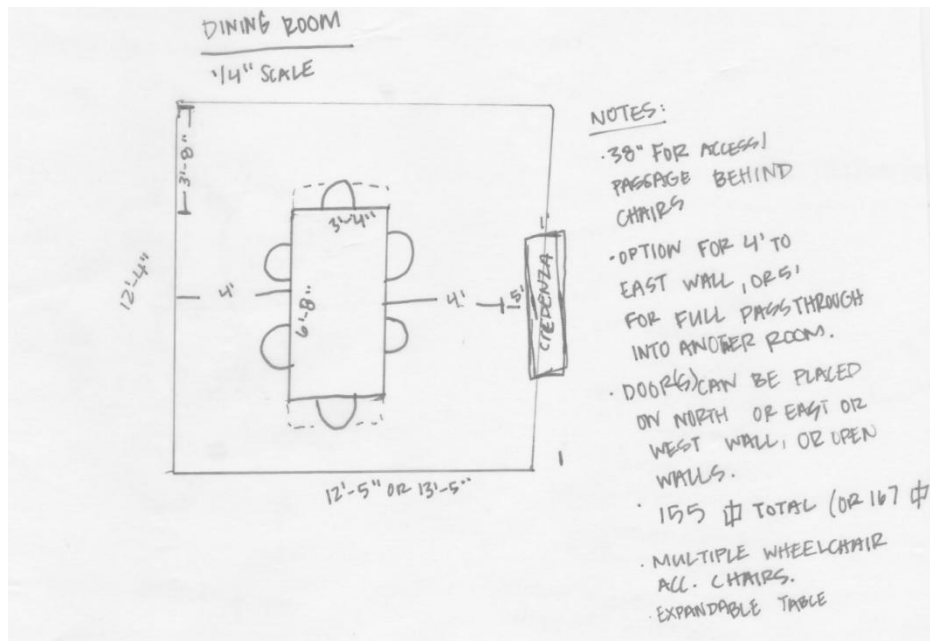 DINING ROOM
1/4" SCALE
3'-8"
12'-4"
4'
3'-4"
6'-8"
4'
1.5'
1'
CREDENZA
12'-5" OR 13'-5"
NOTES:
·38" FOR ACCESS/
PASSAGE BEHIND
CHAIRS
·OPTION FOR 4' TO
EAST WALL, OR 5'
FOR FULL PASSTHROUGH
INTO ANOTHER ROOM.
·DOOR(S) CAN BE PLACED
ON NORTH OR EAST OR
WEST WALL, OR OPEN
WALLS.
·155 ⏍ TOTAL (OR 167 ⏍
·MULTIPLE WHEELCHAIR
ACC. CHAIRS.
·EXPANDABLE TABLE